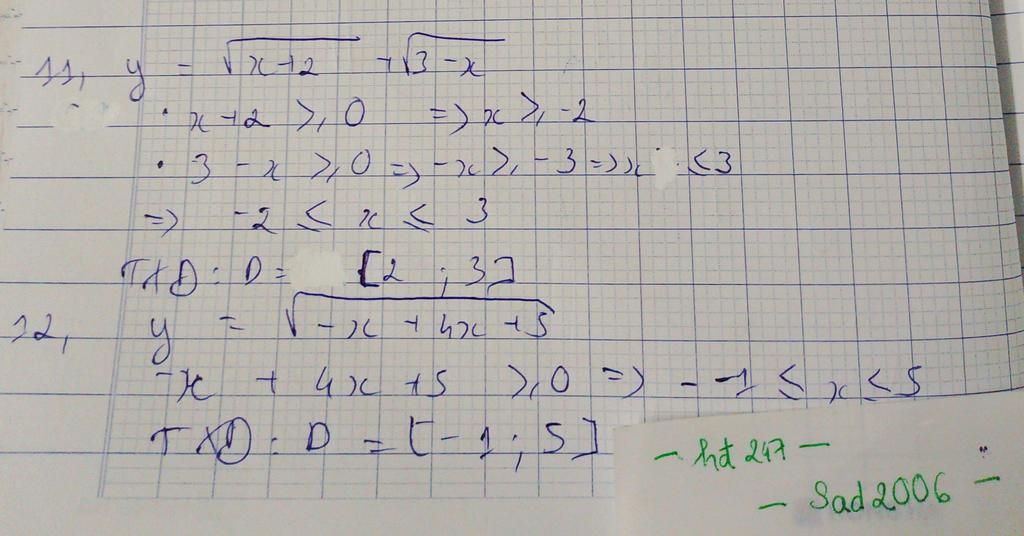 11, y = √x+2 + √3-x
• x+2 ⩾ 0 => x ⩾ -2
• 3 - x ⩾ 0 => -x ⩾ -3 => x ≤ 3
=> -2 ≤ x ≤ 3
TXD : D = [2 ; 3]
12, y = √-x + 4x + 5
-x + 4x + 5 ⩾ 0 => - -1 ≤ x ≤ 5
TXD : D = [-1 ; 5]
- hd 247 -
- Sad2006 -